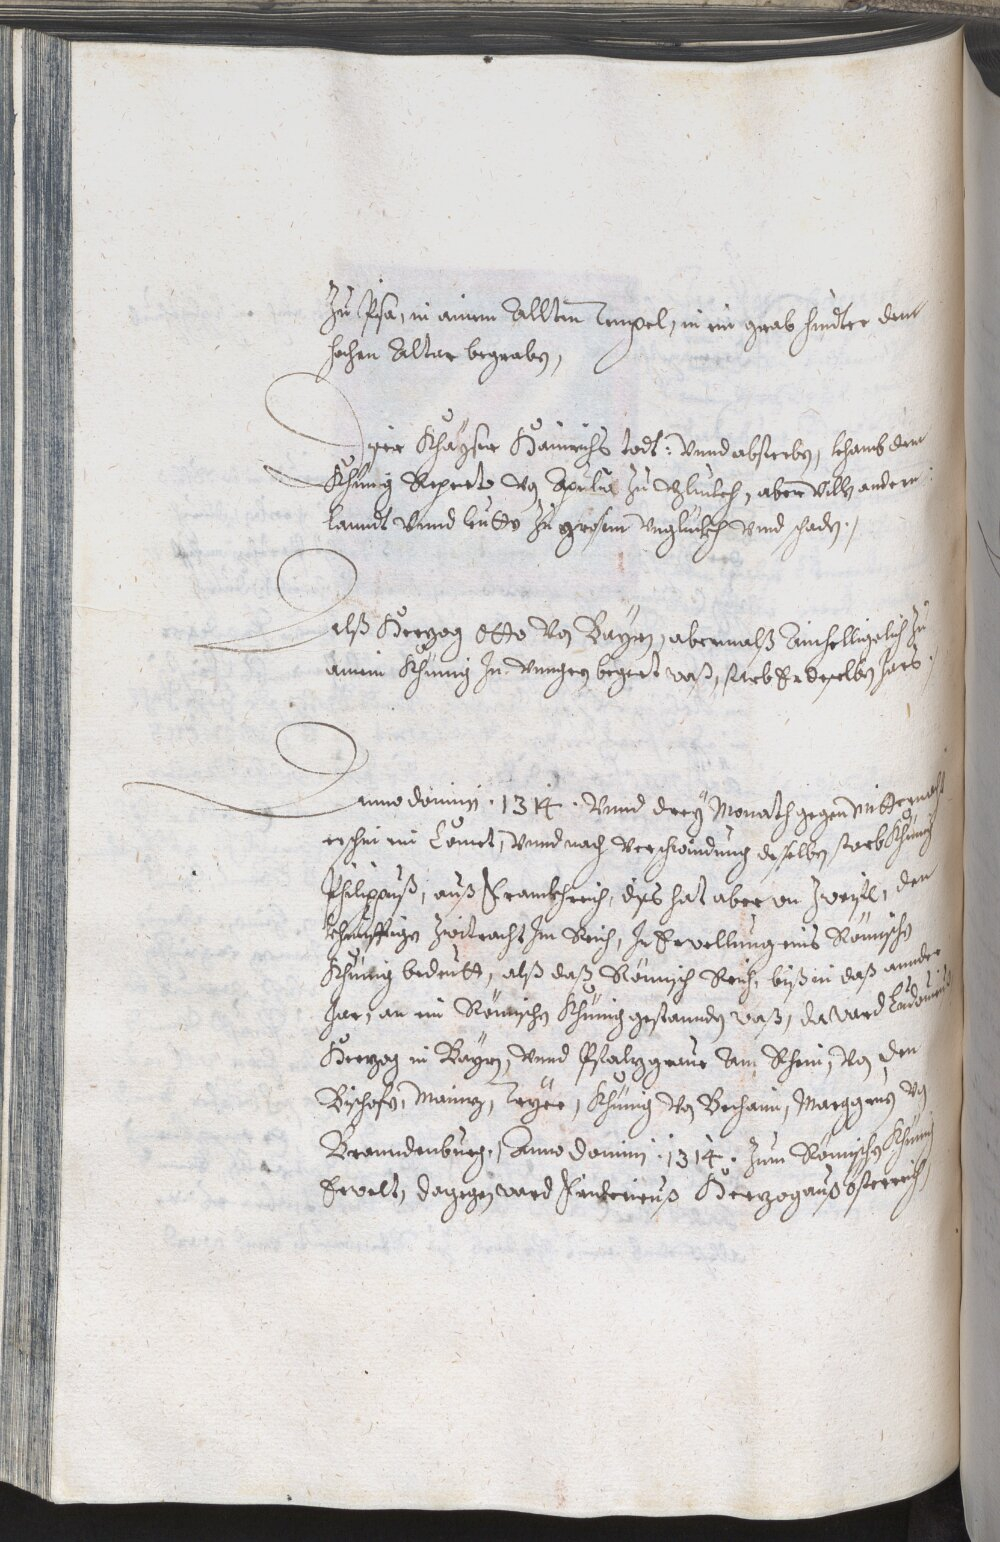 Zu Pisa, in ainem Allten Tempel, in ein grab hindter dem
hohen Altar begrabn,
Dieser Khayser Hainrichs todt: vnnd absterbn, khamb dem
Khünig Ruperto vo Apulia zu glückh, aber villn andern
lanndt vnnd leutts zu grosem vnglückh vnd schadn./
Alß Herzog Otto Von Bayrn, abermalß Ainhelligelich Zu
ainem Khünig In vnngern begert waß, starb Er deselbn Jars./
Anno dominj . 1314 . Vnnd drey Monath gegen Mitternacht
erschin ein Comet, vnnd nach Verschwindung deselbn starb Khünig
Philippuß, auß Frankhreich, dis hat aber on Zweifl, den
khünfftign Zwitracht Im Reich, In Erwellung eins Römischn
Khünig bedeutt, alß daß Römisch Reich, biß in daß annder
Jar, an ein Römischn Khünig gestanndn waß, da ward Ludouicus
Herzog in Bayrn, vnnd Pfalzgraue Am Rhein, Von den
Bischofn, Mainz, Tryer, Khünig Von Behaim, Marggraf Vo
Branndenburg, Anno dominj . 1314 . Zum Römischn Khünig
Erwelt, dagegen ward Fridericuß Herzog auß össterreich,